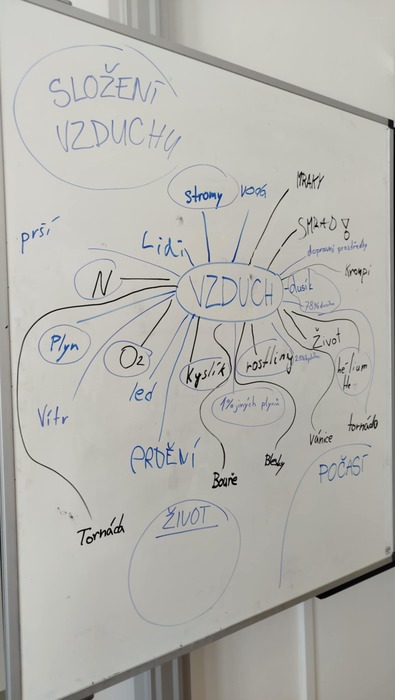 SLOŽENÍ
VZDUCHU
stromy
voda
MRAKY
SMRAD!
prší
Lidi
dopravní prostředky
kroupi
N
VZDUCH
dusík
78% dusíku
Plyn
O2
Kyslík
rostliny
Život
hélium
He
led
1% jiných plynů
Vítr
PRDĚNÍ
Bouře
Blesky
vánice
tornádo
POČASÍ
Tornáda
ŽIVOT